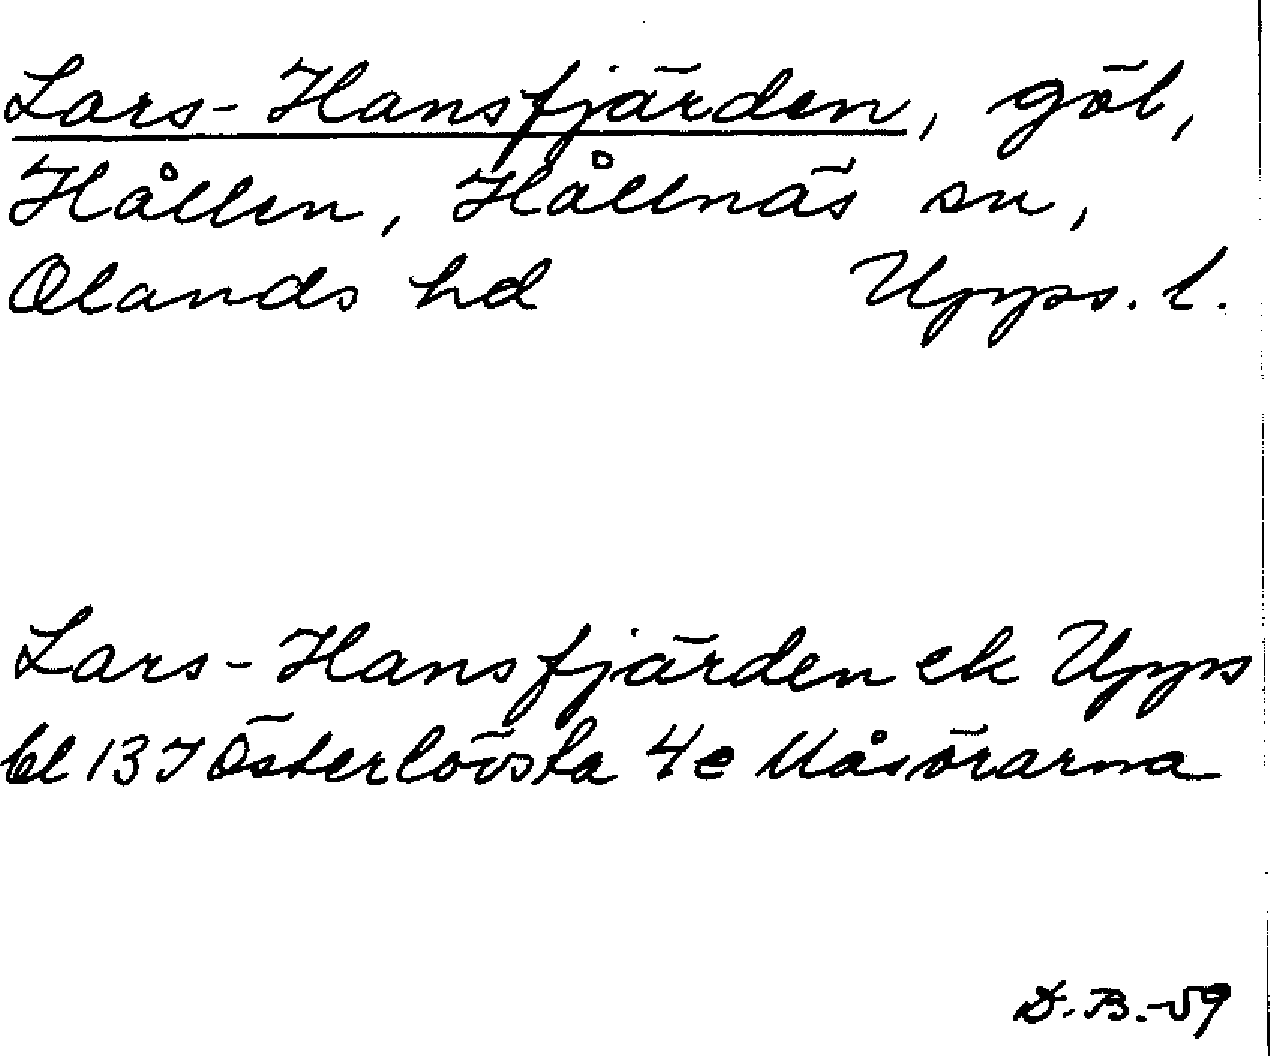 Lars-Hansfjärden, göl,
Hållen, Hållnäs sn,
Olands hd Upps. l.
Lars-Hansfjärden ek Upps
bl 13 I Österlövsta 4e Måsörarna
D.B.-59